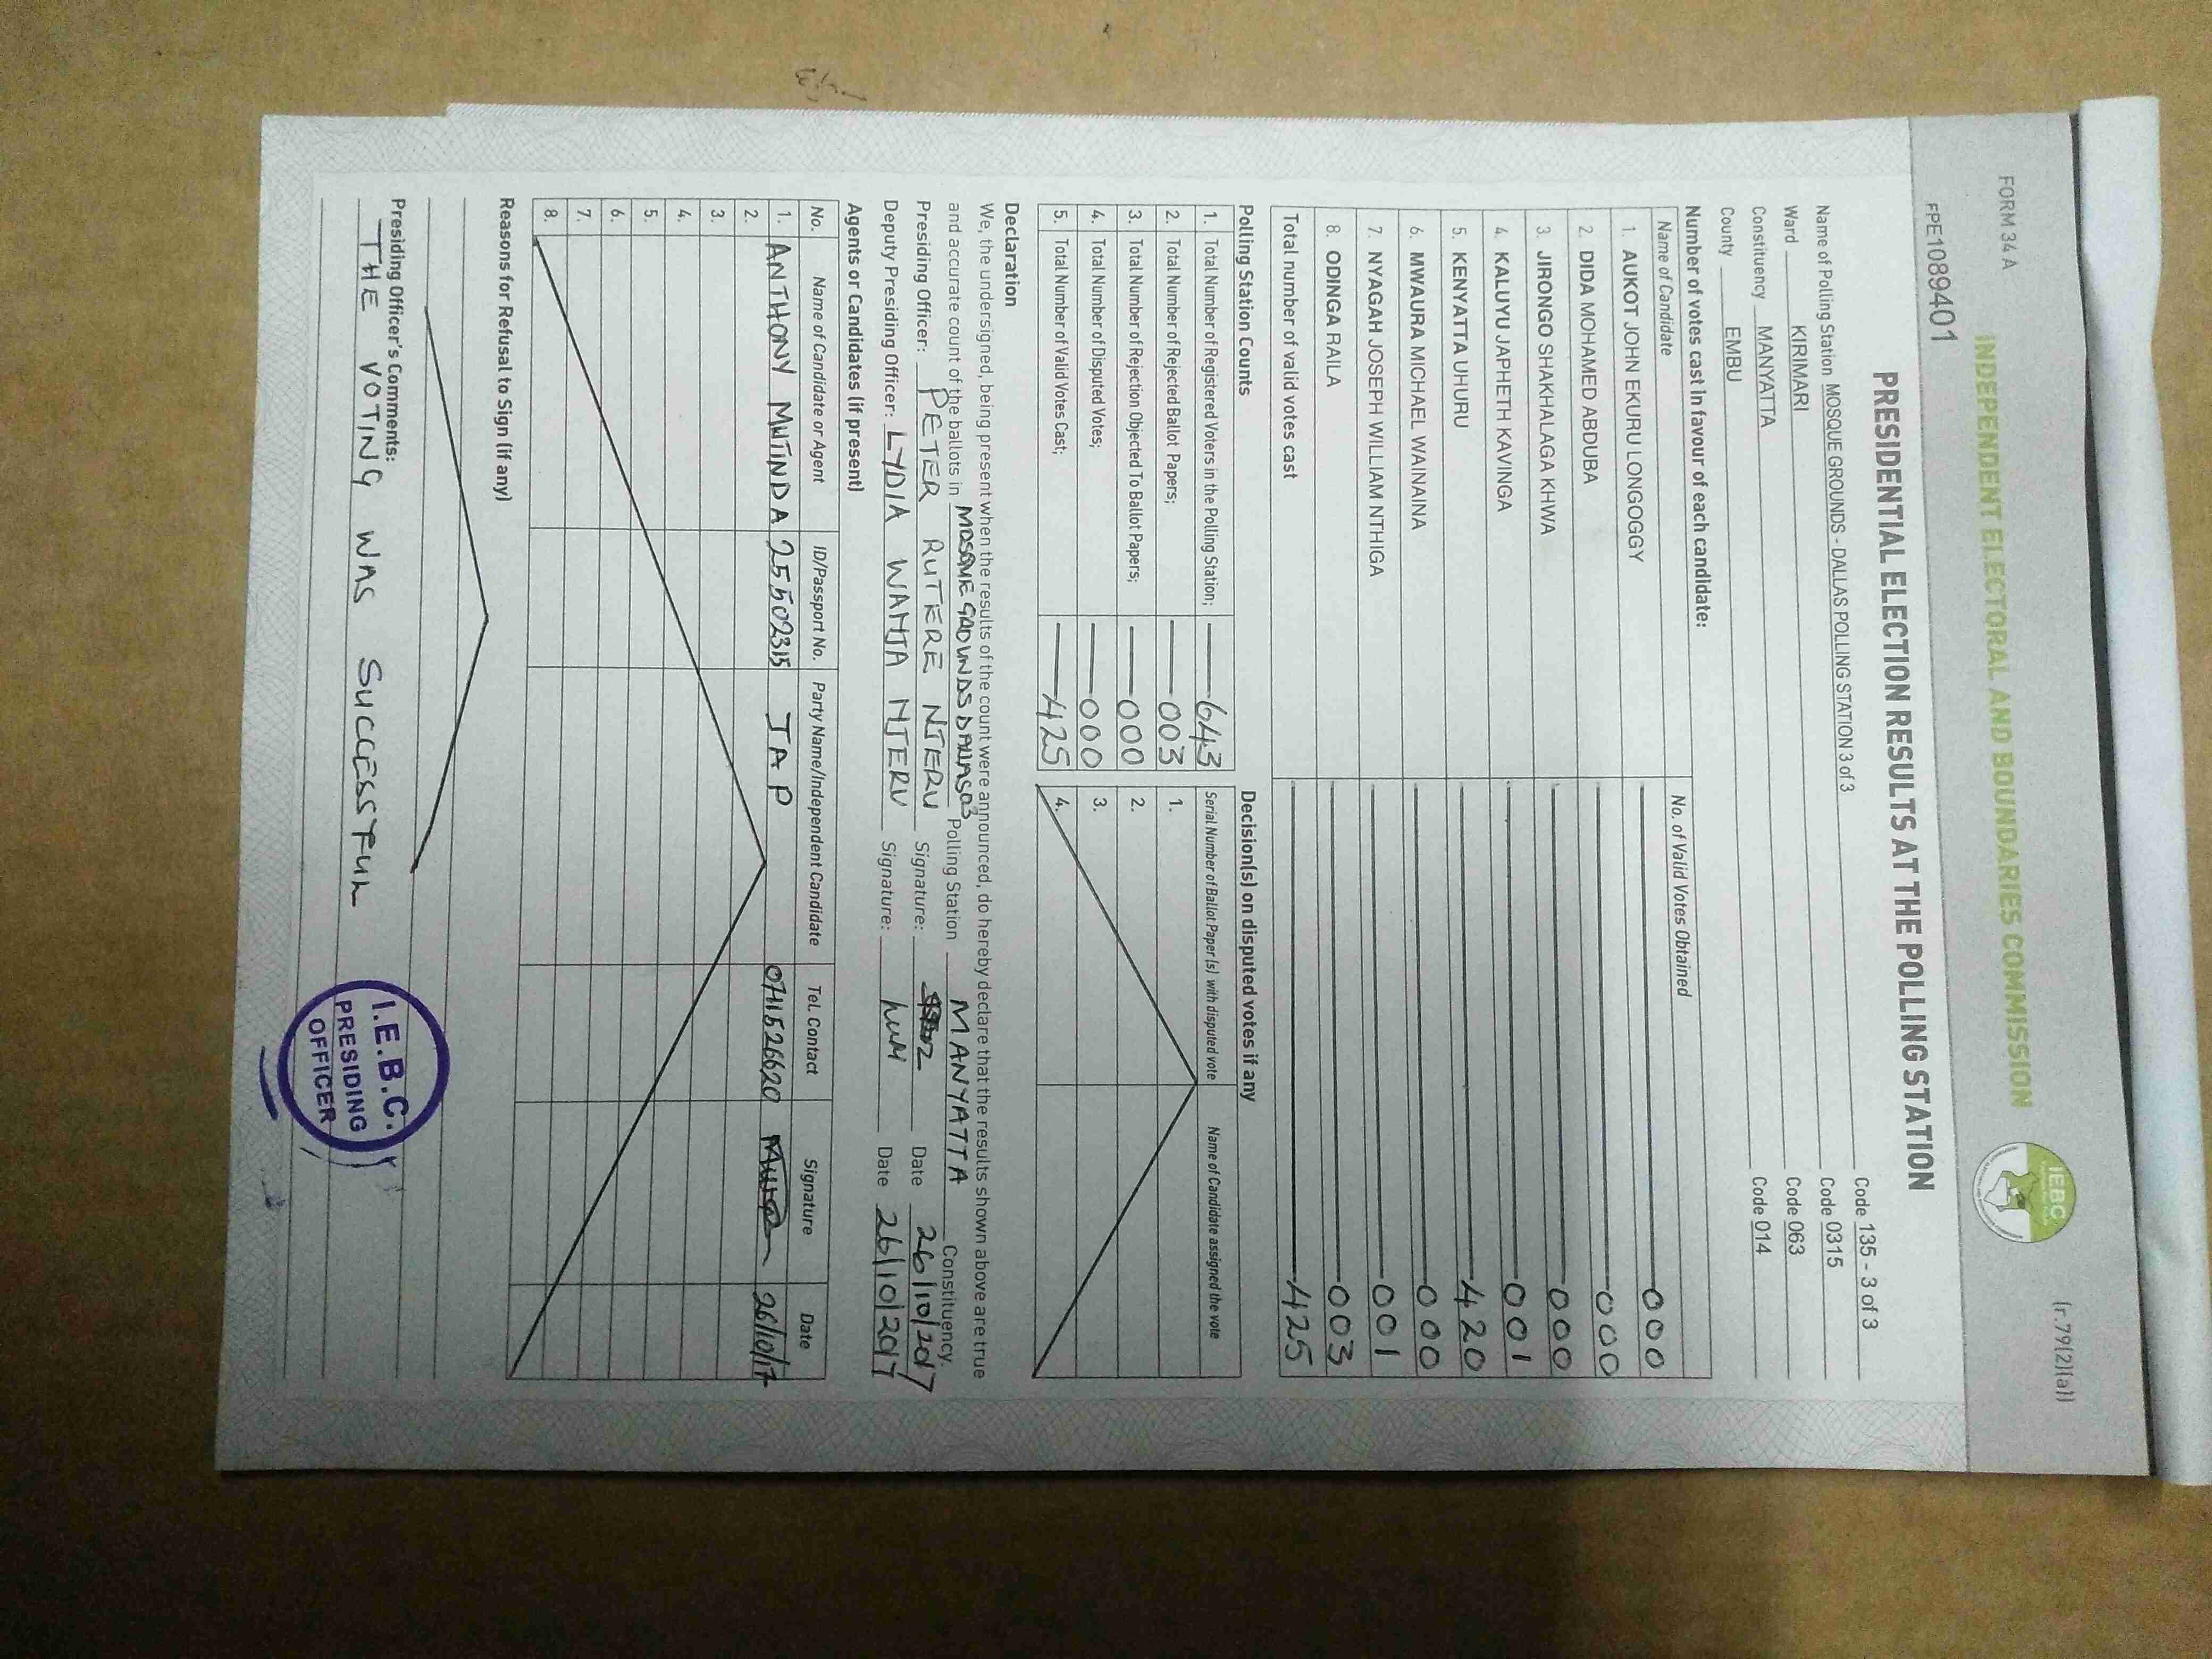 FORM 34 A
(r.79(2)(a))
INDEPENDENT ELECTORAL AND BOUNDARIES COMMISSION
IEBC
FPE1089401
PRESIDENTIAL ELECTION RESULTS AT THE POLLING STATION
Code 135 - 3 of 3
Name of Polling Station MOSQUE GROUNDS - DALLAS POLLING STATION 3 of 3 Code 0315
Ward KIRIMARI Code 063
Constituency MANYATTA Code 014
County EMBU
Number of votes cast in favour of each candidate:
Name of Candidate No. of Valid Votes Obtained
1. AUKOT JOHN EKURU LONGOGGY 000
2. DIDA MOHAMED ABDUBA 000
3. JIRONGO SHAKHALAGA KHWA 000
4. KALUYU JAPHETH KAVINGA 001
5. KENYATTA UHURU 420
6. MWAURA MICHAEL WAINAINA 000
7. NYAGAH JOSEPH WILLIAM NTHIGA 001
8. ODINGA RAILA 003
Total number of valid votes cast 425
Polling Station Counts Decision(s) on disputed votes if any
1. Total Number of Registered Voters in the Polling Station; 643 Serial Number of Ballot Paper (s) with disputed vote Name of Candidate assigned the vote
2. Total Number of Rejected Ballot Papers; 003 1.
3. Total Number of Rejection Objected To Ballot Papers; 000 2.
4. Total Number of Disputed Votes; 000 3.
5. Total Number of Valid Votes Cast; 425 4.
Declaration
We, the undersigned, being present when the results of the count were announced, do hereby declare that the results shown above are true
and accurate count of the ballots in MOSQUE GROUNDS DALLAS 03 Polling Station MANYATTA Constituency.
Presiding Officer: PETER RUTERE NJERU Signature: Date 26/10/2017
Deputy Presiding Officer: LYDIA WANJA NJERU Signature: Date 26/10/2017
Agents or Candidates (if present)
No. Name of Candidate or Agent ID/Passport No. Party Name/Independent Candidate Tel. Contact Signature Date
1. ANTHONY MUTINDA 25502315 JAP 0711526620 26/10/17
2.
3.
4.
5.
6.
7.
8.
Reasons for Refusal to Sign (if any)
Presiding Officer's Comments:
THE VOTING WAS SUCCESSFUL
I.E.B.C.
PRESIDING
OFFICER